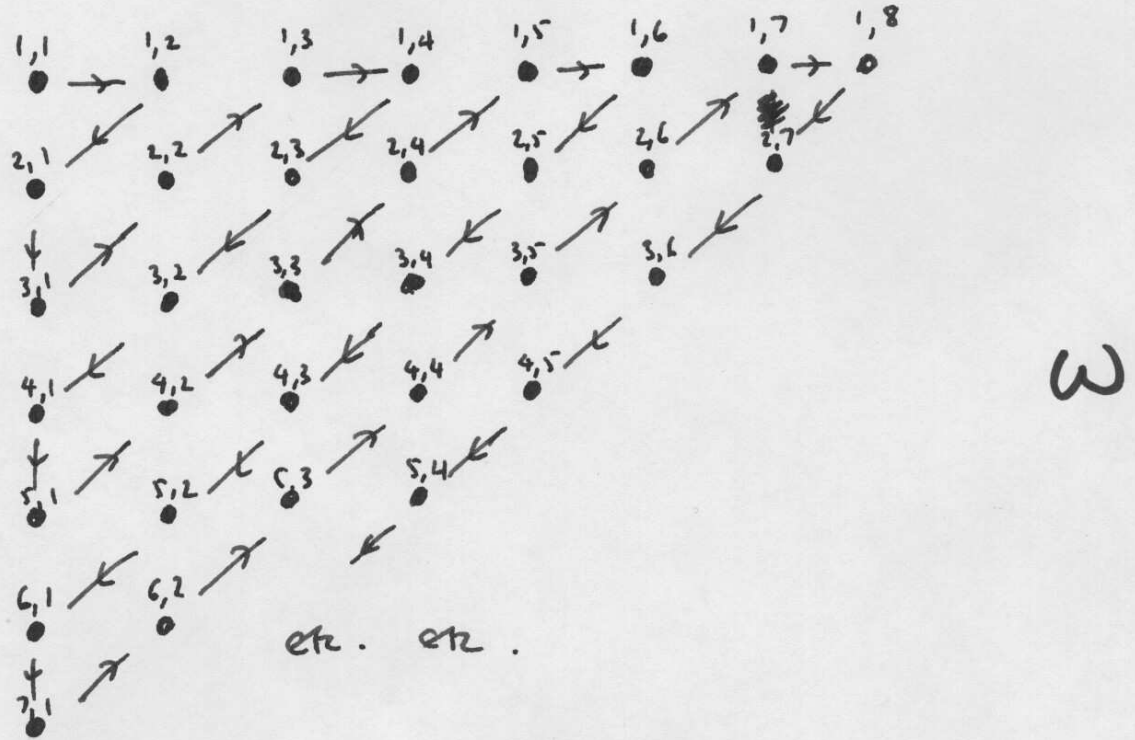 1,1 1,2 1,3 1,4 1,5 1,6 1,7 1,8
2,1 2,2 2,3 2,4 2,5 2,6 2,7
3,1 3,2 3,3 3,4 3,5 3,6
4,1 4,2 4,3 4,4 4,5
ω
5,1 5,2 5,3 5,4
6,1 6,2
etc. etc.
7,1